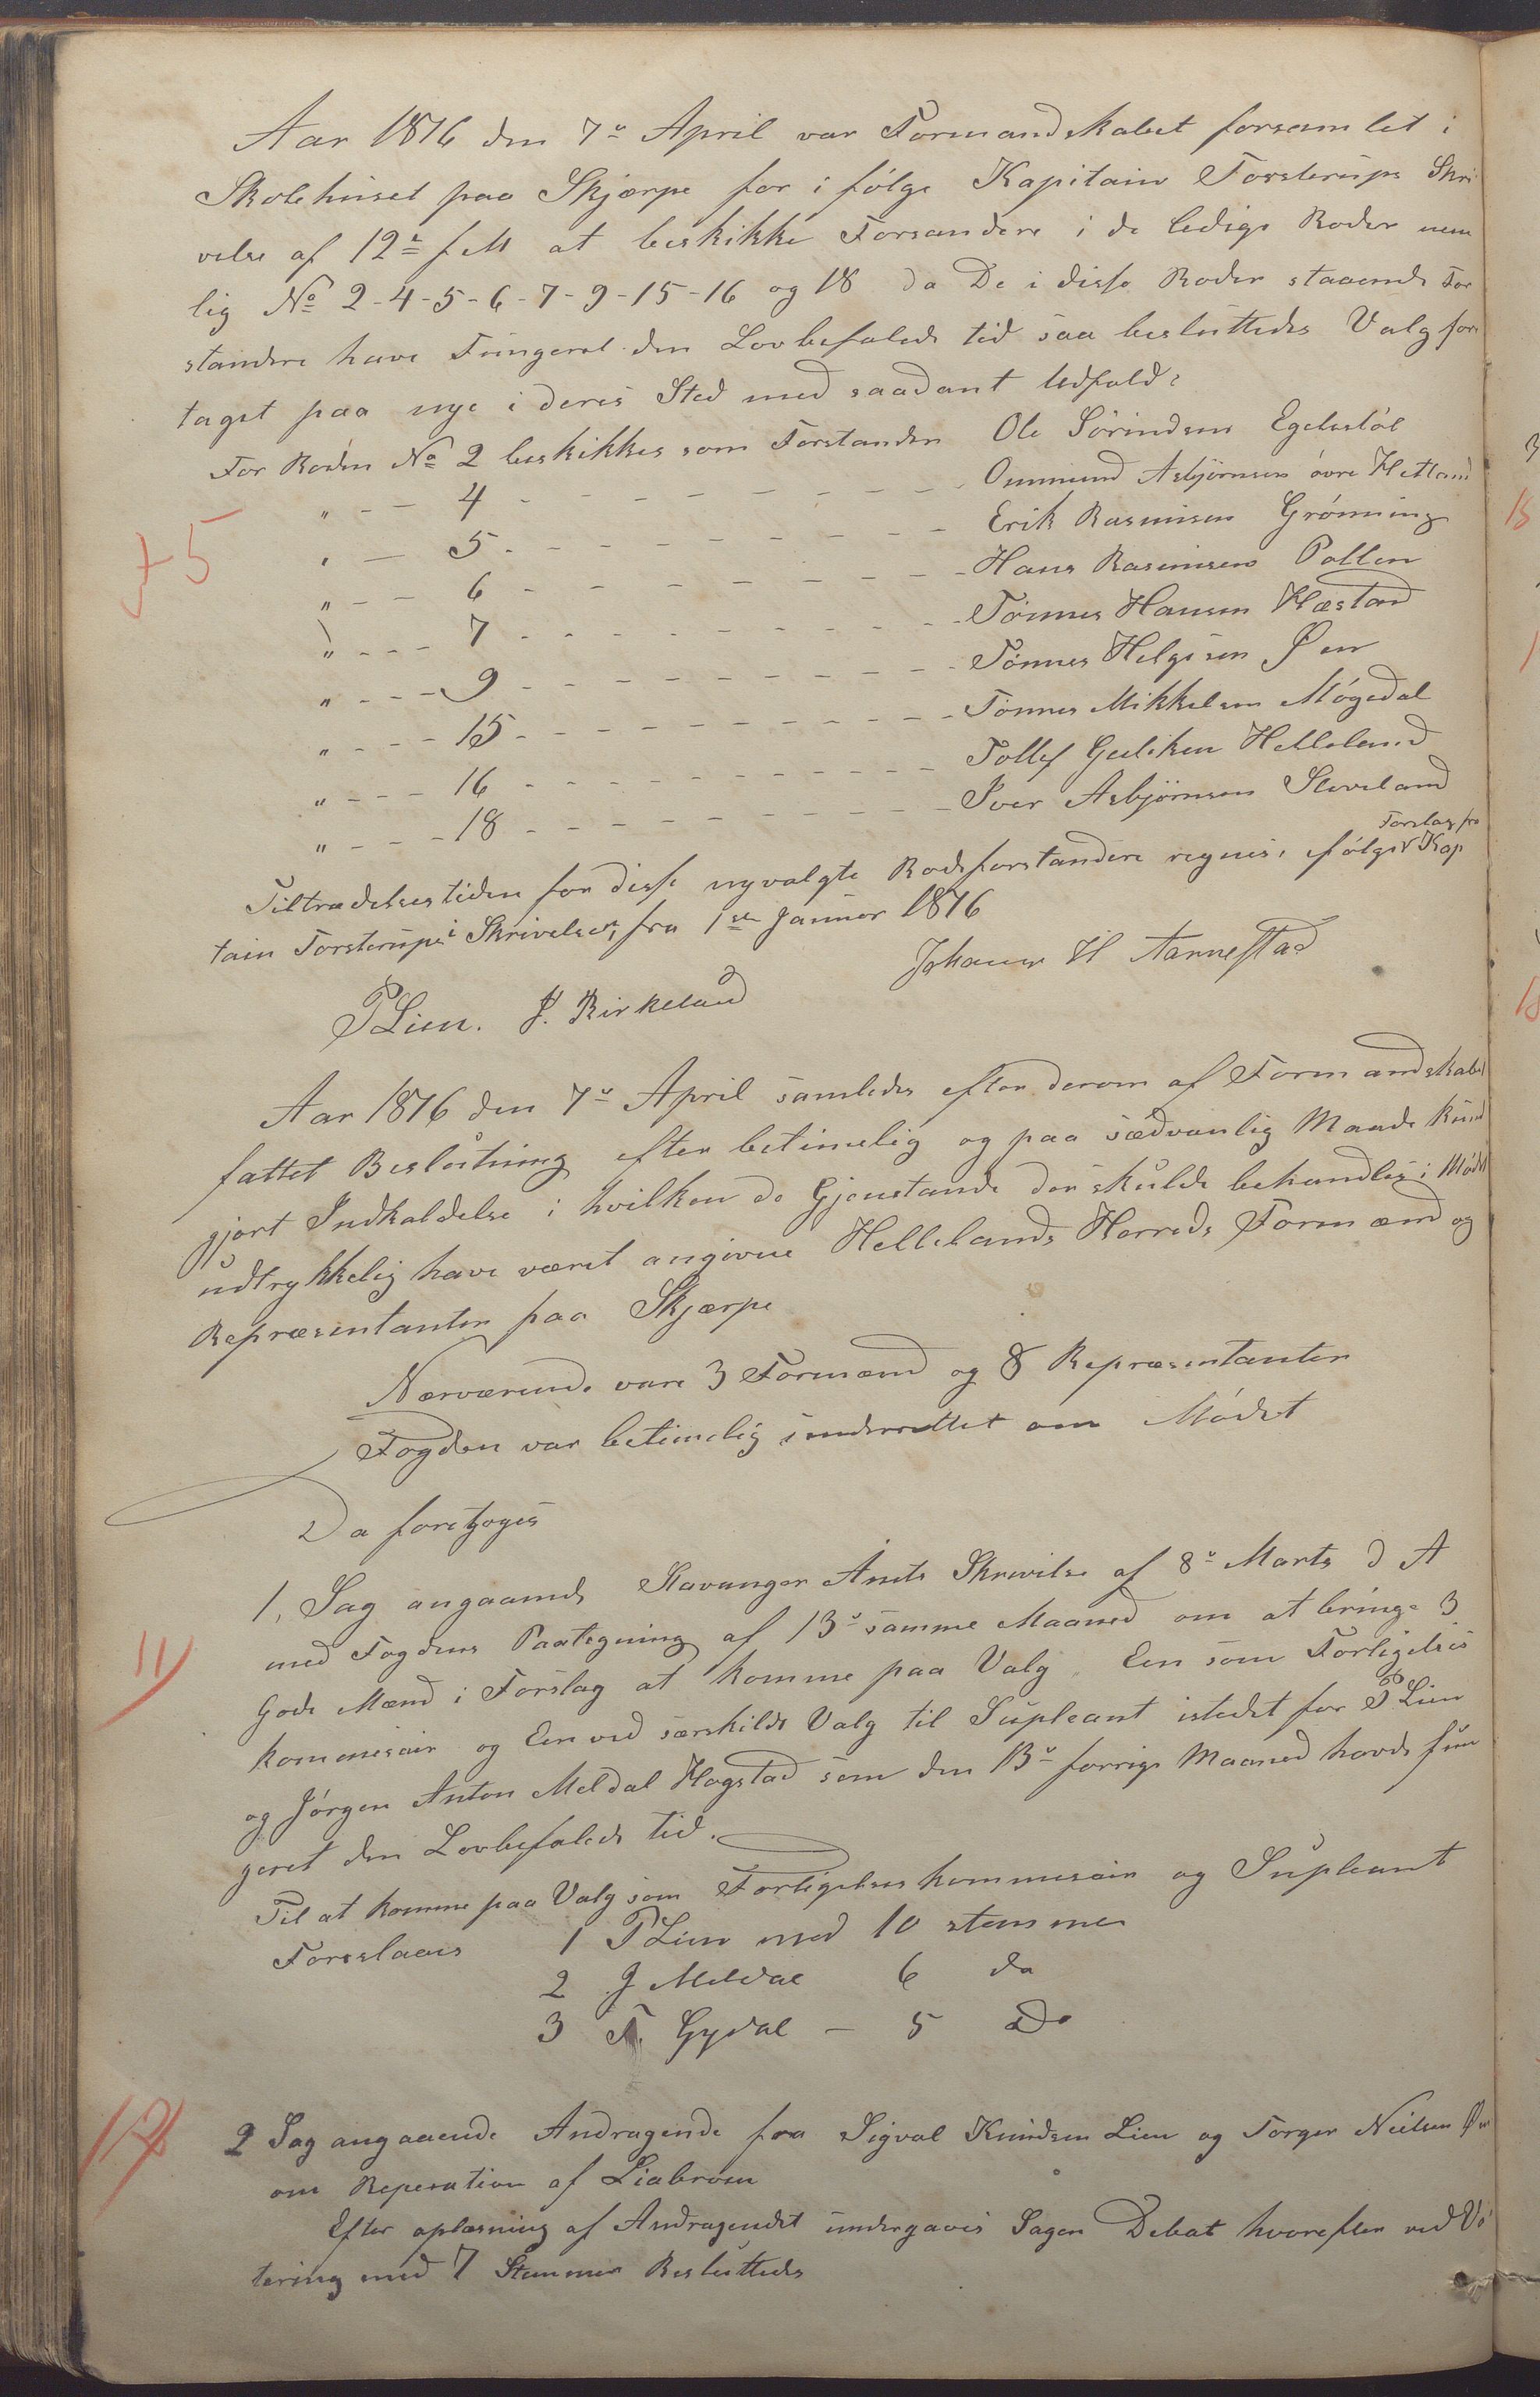 Aar 1876 den 7de April var Formandskabet forsamlet i
Skolehuset paa Skjærpe for i følge Kapitain Torsterups Skri
velse af 12te f M at beskikke Forsandere i de ledige Roder nem
lig No 2-4-5-6-7-9-15-16 og 18 da De i disse Roder staaende For
standere have Fungeret den Lovbefalede tid saa besluttedes Valg fore
taget paa nye i deres Sted med saadant Udfald:
For Roden No 2 beskikkes som Forstander Ole Sørindsen Egelestøl
" - - 4 - - - Ommund Asbjørnsen øvre Hetland
+5
" - 5 - - - Erik Rasmusen Grønning
" - - 6 - - - Hans Rasmusen Pollen
" - - - 7 - - - Tønnes Hansen Hæstad
" - - - 9 - - - Tønnes Helgesen Øen
" - - - 15 - - - Tønnes Mikkelsen Møgedal
" - - - 16 - - - Tollef Guliksen Helleland
" - - - 18 - - - Iver Asbjørnsen Sleveland
Tiltrædelsestiden for disse nyvalgte Rodeforstandere regnes i følge Forslag fra Kap
tain Torsterups i Skrivelse, fra 1ste Januar 1876
PLien. J. Birkeland Johannes H Aarrestad
Aar 1876 den 7de April samledes efter derom af Formandskabet
fattet Beslutning efter betimelig og paa sædvanlig Maade Kund
gjort Indkaldelse i hvilken de Gjenstande der skulde behandles i Mødet
udtrykkelig have været angivne Hellelands Herreds Formænd og
Repræsentanter paa Skjærpe
Nærværende vare 3 Formænd og 8 Repræsentanter
Fogden var betimelig underrettet om Mødet
Da foretoges
11
1, Sag angaaende Stavanger Amts Skrivelse af 8de Marts d A
med Fogdens Paategning af 13de samme Maaned om at bringe 3
Gode Mænd i Forslag at komme paa Valg. Een som Forligelses
kommesair og Een ved særskildt Valg til Supleant istedet for P Lien
og Jørgen Anton Meldal Hogstad som den 13de forrige Maaned havde fun
geret den Lovbefalede tid.
Til at komme paa Valg som Forligelses kommesair og Supleant
Foreslaaes 1 PLien med 10 stemmer
2 J Meldal 6 do
3 T. Gydal - 5 Do
12
2 Sag angaaende Andragende fra Sigval Knudsen Lien og Torger Neilsen Øen
om Reperation af Liabroen
Efter oplæsning af Andragendet undergaves Sagen Debat hvorefter ved Vo
tering med 7 Stemmer Besluttedes